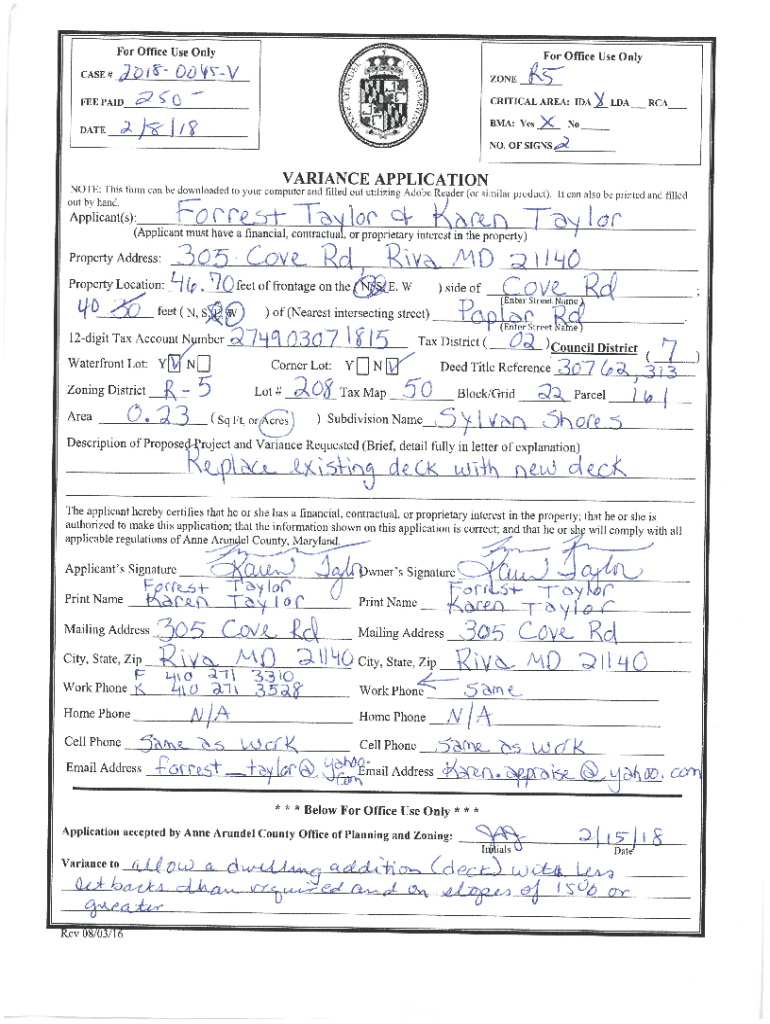 For Office Use Only
CASE # 2018-0045-V
FEE PAID 250-
DATE 2/8/18
For Office Use Only
ZONE R5
CRITICAL AREA: IDA X LDA RCA
BMA: Yes X No
NO. OF SIGNS 2
VARIANCE APPLICATION
NOTE: This form can be downloaded to your computer and filled out utilizing Adobe Reader (or similar product). It can also be printed and filled
out by hand.
Applicant(s): Forrest Taylor & Karen Taylor
(Applicant must have a financial, contractual, or proprietary interest in the property)
Property Address: 305 Cove Rd, Riva MD 21140
Property Location: 46.70 feet of frontage on the (N, S, E, W ) side of Cove Rd ;
(Enter Street Name)
40 feet ( N, S, E, W ) of (Nearest intersecting street) Poplar Rd .
(Enter Street Name)
12-digit Tax Account Number 274903071815 Tax District ( 02 ) Council District ( 7 )
Waterfront Lot: Y ✓ N Corner Lot: Y N ✓ Deed Title Reference 30762, 313
Zoning District R-5 Lot # 208 Tax Map 50 Block/Grid 22 Parcel 161
Area 0.23 (Sq Ft. or Acres) ) Subdivision Name Sylvan Shores
Description of Proposed Project and Variance Requested (Brief, detail fully in letter of explanation)
Replace existing deck with new deck
The applicant hereby certifies that he or she has a financial, contractual, or proprietary interest in the property; that he or she is
authorized to make this application; that the information shown on this application is correct; and that he or she will comply with all
applicable regulations of Anne Arundel County, Maryland.
Applicant's Signature Karen Taylor Owner's Signature Karen Taylor
Forrest Taylor Forrest Taylor
Print Name Karen Taylor Print Name Karen Taylor
Mailing Address 305 Cove Rd Mailing Address 305 Cove Rd
City, State, Zip Riva MD 21140 City, State, Zip Riva MD 21140
F 410 271 3310
Work Phone K 410 271 3528 Work Phone Same
Home Phone N/A Home Phone N/A
Cell Phone Same as work Cell Phone Same as work
Email Address forrest_taylor@yahoo.com Email Address Karen.appraise@yahoo.com
* * * Below For Office Use Only * * *
Application accepted by Anne Arundel County Office of Planning and Zoning: 2/15/18
Initials Date
Variance to allow a dwelling addition (deck) with less
setbacks than required and on slopes of 15% or
greater
Rev 08/03/16